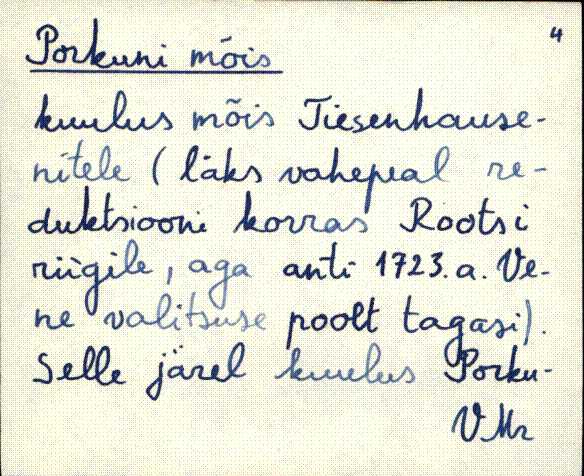 4
Porkuni mõis
kuulus mõis Tiesenhause-
nitele (läks vahepeal re-
duktsiooni korras Rootsi
riigile, aga anti 1723.a. Ve-
ne valitsuse poolt tagasi).
Selle järel kuulus Porku-
VMr